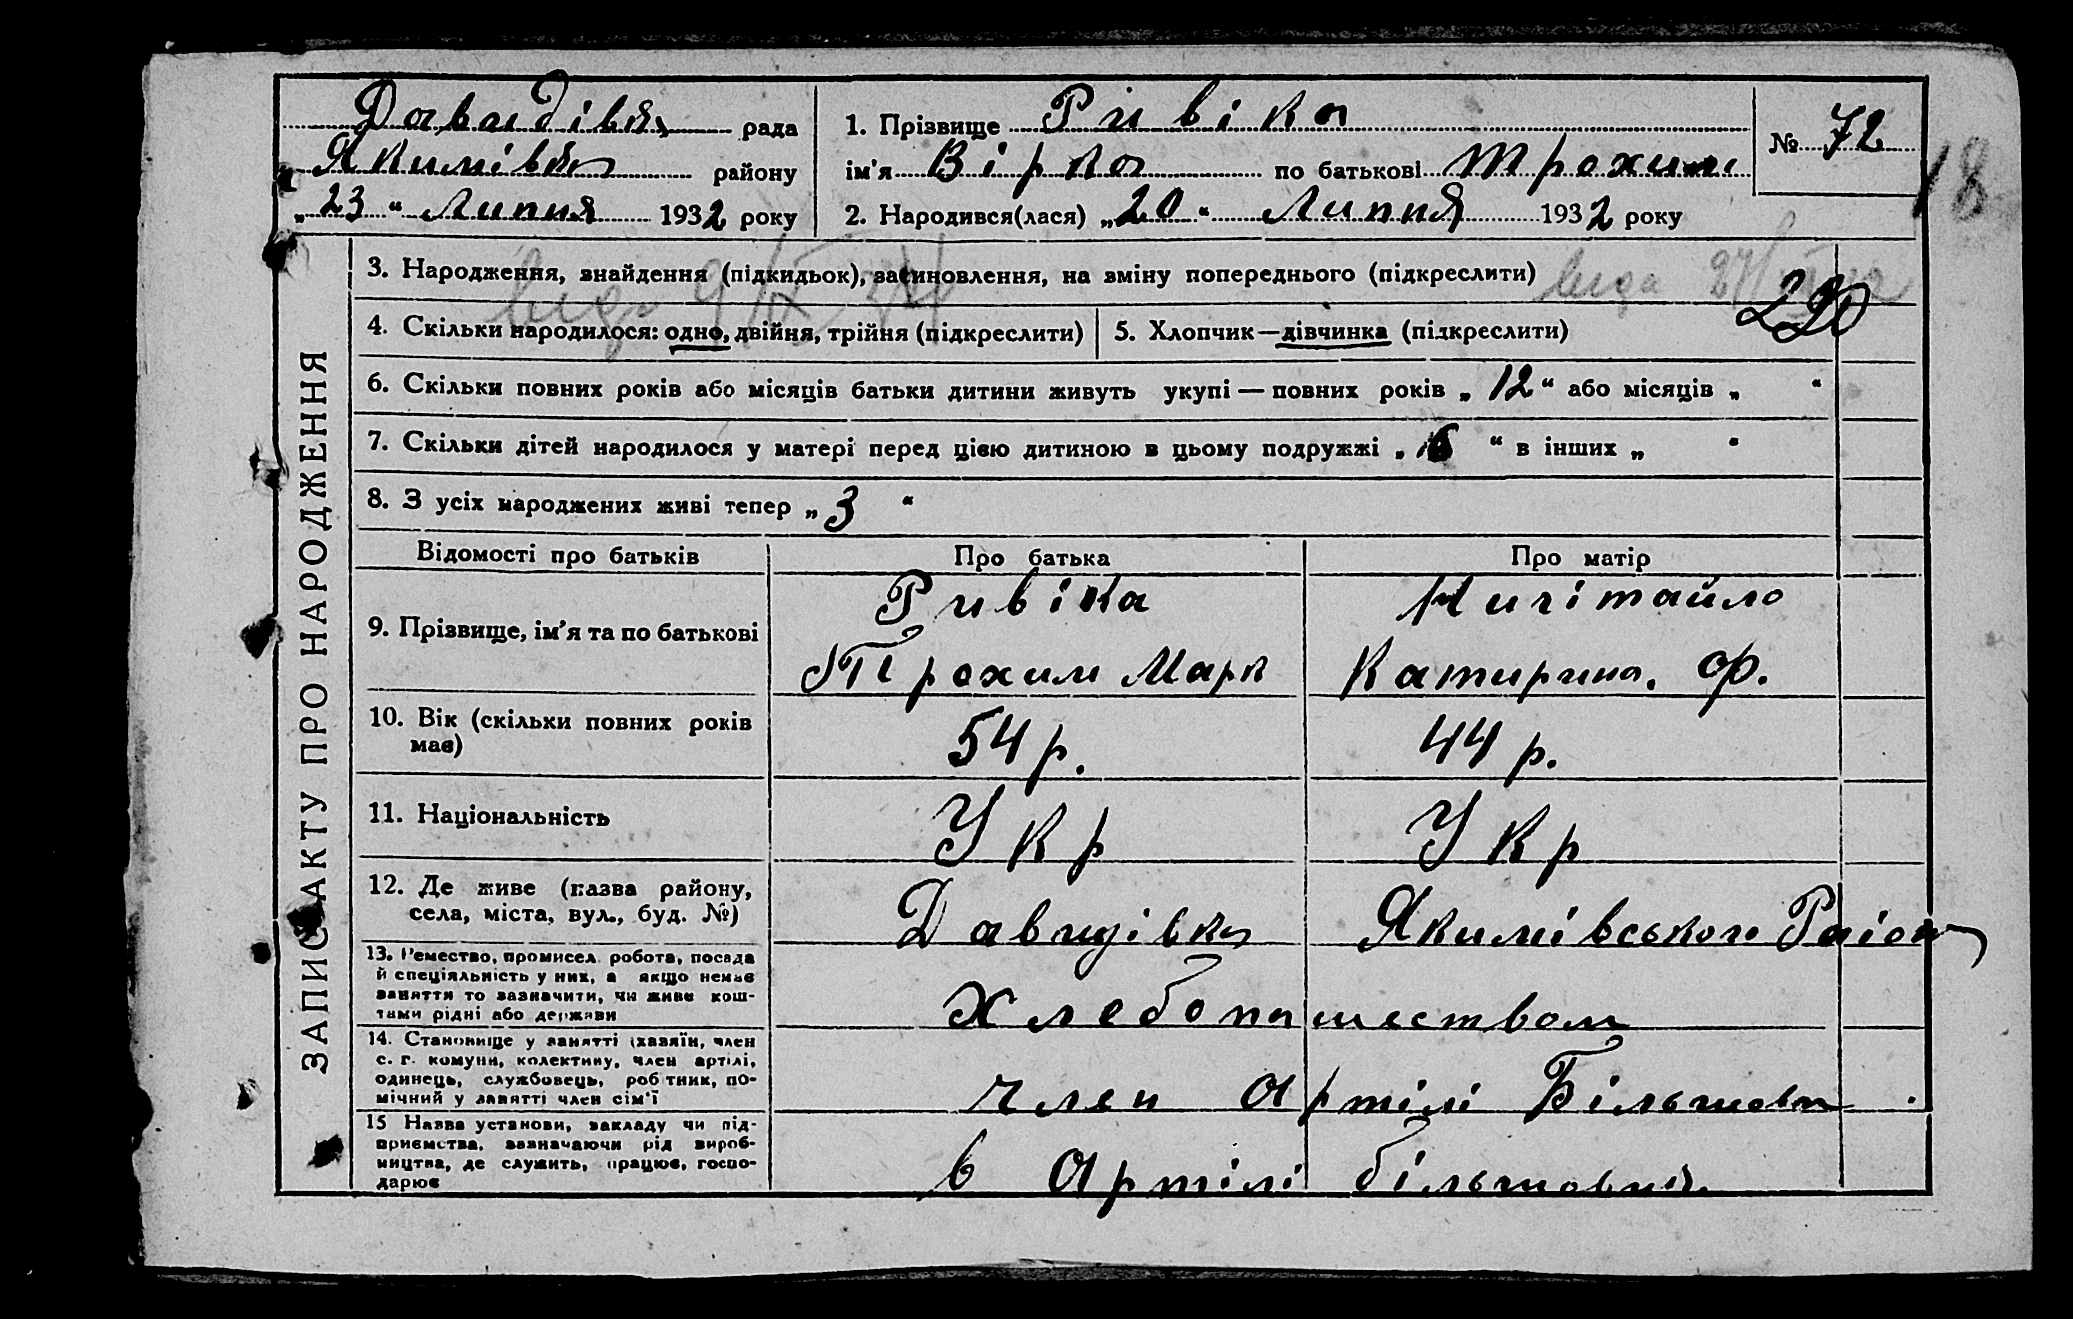 Давидівка рада
Якимівка району
„23“ Липня 1932 року
1. Прізвище Ривіка
ім'я Вірка по батькові Трохим
2. Народився(лася) „20“ Липня 1932 року
№ 72
18
ЗАПИС АКТУ ПРО НАРОДЖЕННЯ
3. Народження, знайдення (підкидьок), засиновлення, на зміну попереднього (підкреслити)
4. Скільки народилося: одно, двійня, трійня (підкреслити) 5. Хлопчик—дівчинка (підкреслити)
6. Скільки повних років або місяців батьки дитини живуть укупі — повних років „12“ або місяців „ “
7. Скільки дітей народилося у матері перед цією дитиною в цьому подружжі „6“ в інших „ “
8. З усіх народжених живі тепер „3“
Відомості про батьків Про батька Про матір
9. Прізвище, ім'я та по батькові
Ривіка
Трохим Марк
Ничітайло
Катирина. Ф.
10. Вік (скільки повних років
має)
54 р. 44 р.
11. Національність Укр Укр
12. Де живе (назва району,
села, міста, вул., буд. №)
Давидівка Якимівського Раіону
13. Ремество, промисел, робота, посада
й спеціяльність у них, а якщо немає
заняття то зазначити, чи живе кош-
тами рідні або держави
Хлебопашеством
14. Становище у занятті (хазяїн, член
с. г. комуни, колективу, член артілі,
одинець, службовець, робітник, по-
мічний у занятті член сім'ї
член Артілі Більшовик
15 Назва установи, закладу чи під-
приємства, зазначаючи рід вироб-
ництва, де служить, працює, госпо-
дарює
в Артілі більшовик